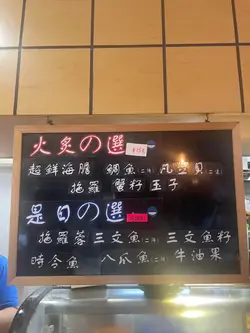 火炙の選
超鮮海膽 鯛魚(二件) 帆立貝(二件)
拖羅 蟹籽 玉子
是日の選
拖羅蓉 三文魚(二件) 三文魚籽
時令魚 八爪魚(二件) 牛油果